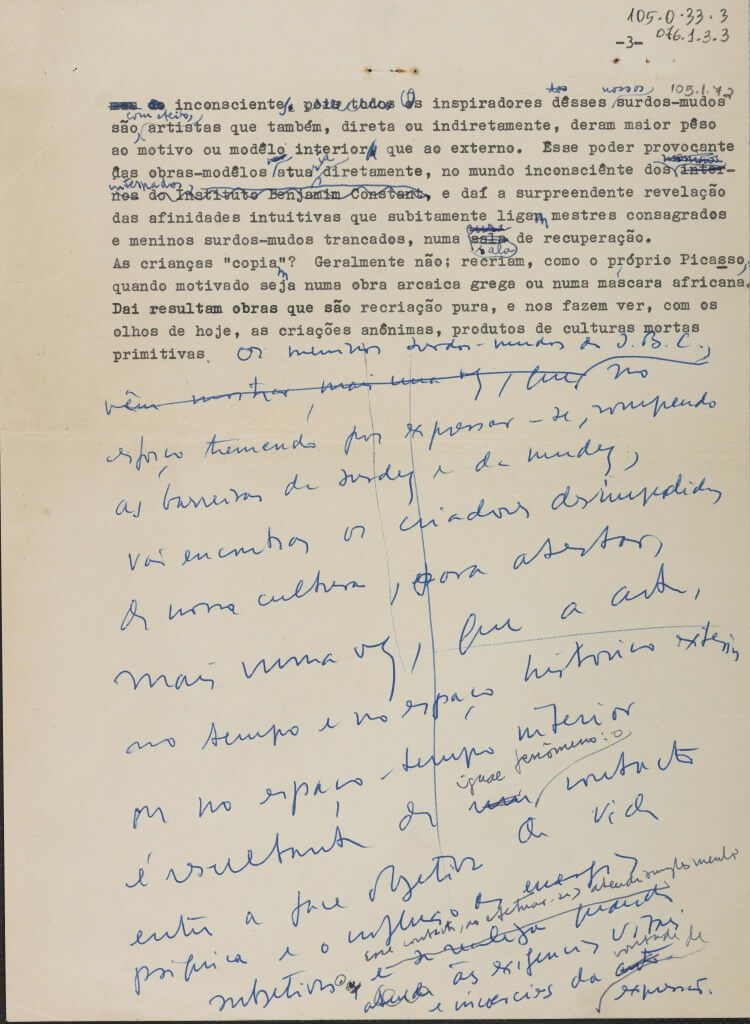 105.0.33.3
-3- 076.1.3.3
105.1.72
dos nossos
inconsciente, pois todos os inspiradores dêsses surdos-mudos
com efeito,
são, artistas que também, direta ou indiretamente, deram maior pêso
ao motivo ou modêlo interior que ao externo. Esse poder provocante
das obras-modêlos atua diretamente, no mundo inconsciênte dos inter-
internados,
nos do Instituto Benjamim Constant, e daí a surpreendente revelação
das afinidades intuitivas que subitamente ligam mestres consagrados
e meninos surdos-mudos trancados, numa sala de recuperação.
sala
As crianças "copiam"? Geralmente não; recriam, como o próprio Picasso,
quando motivado seja numa obra arcaica grega ou numa máscara africana.
Dai resultam obras que são recriação pura, e nos fazem ver, com os
olhos de hoje, as criações anônimas, produtos de culturas mortas
primitivas. Os meninos surdos-mudos do I.B.C.,
vêm mostrar, mais uma vez, que, no
esforço tremendo por expressar-se, rompendo
as barreiras da surdez e da mudez,
vai encontrar os criadores desimpedidos
de nossa cultura, para atestar,
mais uma vez, que a arte,
no tempo e no espaço histórico exterior
ou no espaço-tempo interior
igual fenômeno: o
é resultante de um contacto
entre a face objetiva da vida
psíquica e o influxo da energia
esse contacto, ao efetuar-se, atende simplesmente
subjetiva e se realiza
às exigências vitais
vontade de
e inoercíveis da
expressar.